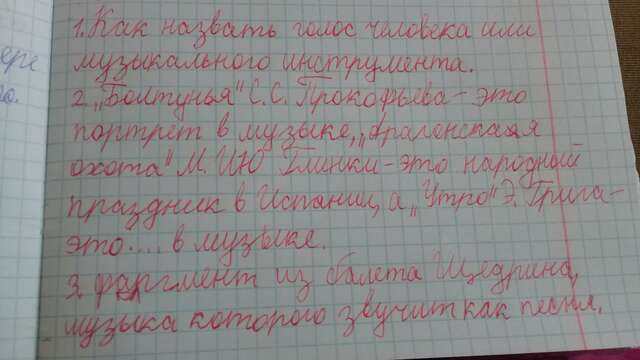 1. Как назвать голос человека или
ере музыкального инструмента.
го. 2. „Болтунья" С.С. Прокофьева - это
портрет в музыке, „арагонская
охота" М. И Ю Глинки - это народный
праздник в Испании, а „Утро" Э. Грига -
это.... в музыке.
3. фрагмент из балета Щедрина,
музыка которого звучит как песня.